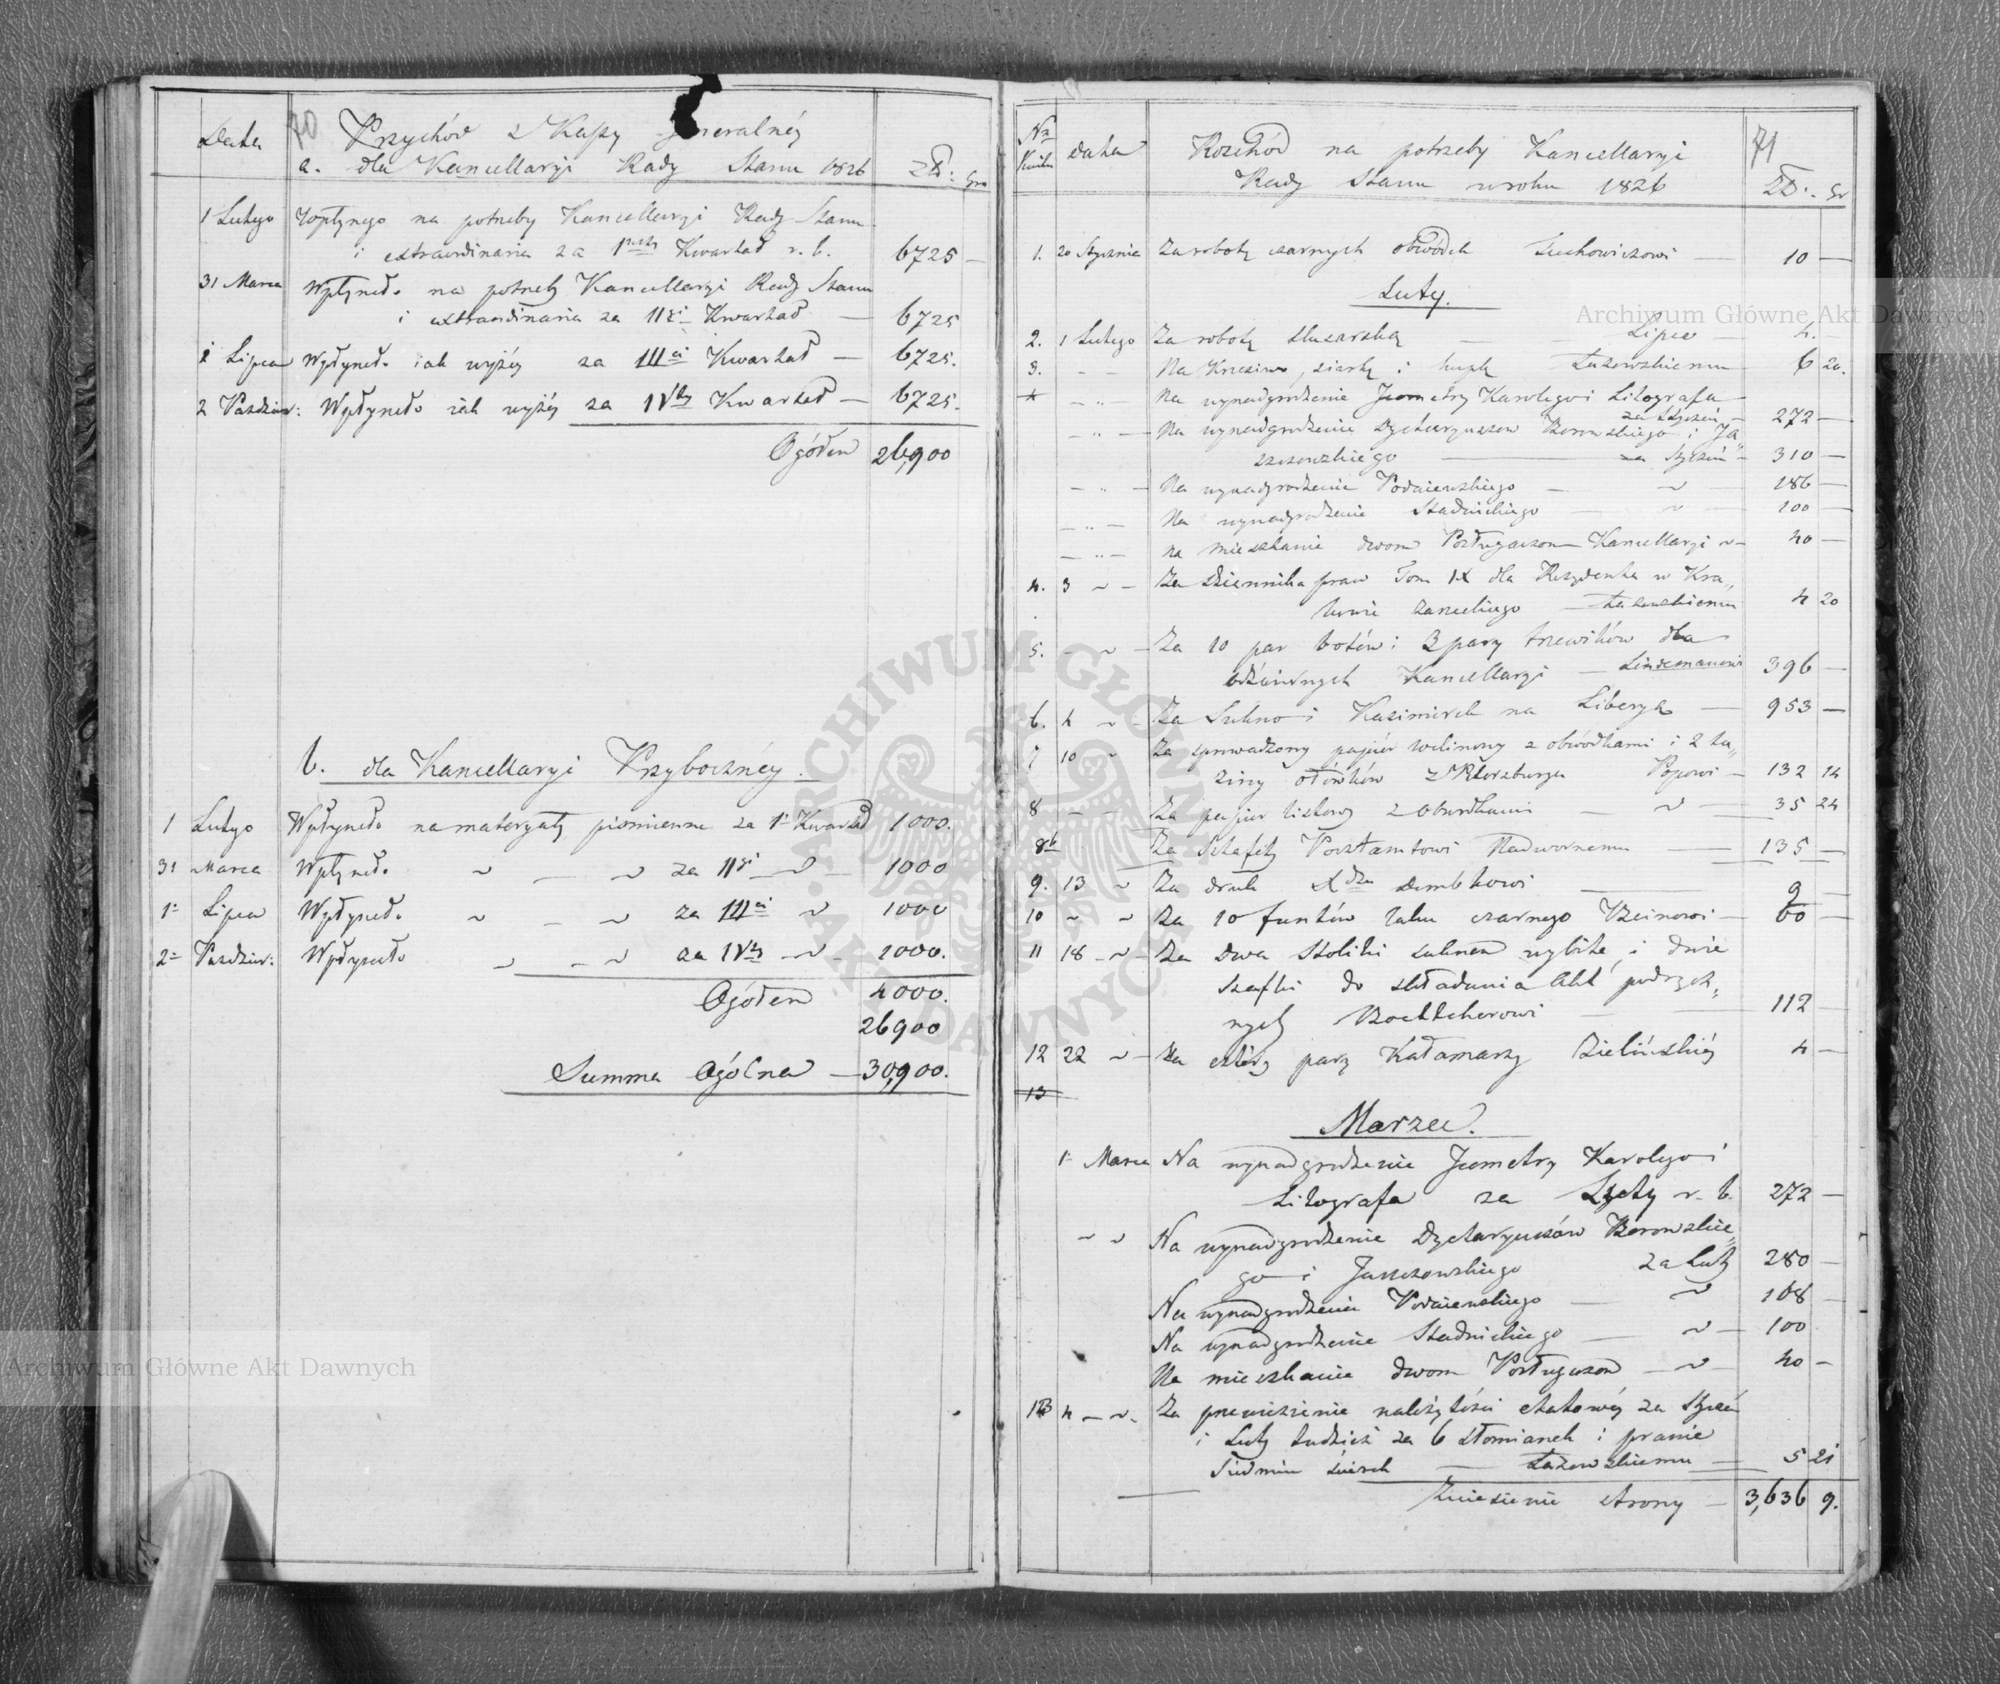 70
Data
Przychód z Kassy Jeneralnéy
a. dla Kancellaryi Rady Stanu 1826
Zł: gro
1 Lutego Wpłynęło na potrzeby Kancellaryi Rady Stanu
i extraordinaria za 1wszy Kwartał r. b. 6725 —
31 Marca Wpłynęło na potrzeby Kancellaryi Rady Stanu
i extraordinaria za IIgi Kwartał — 6725
1 Lipca Wpłynęło iak wyżéy za IIIci Kwartał — 6725.
2 Paździer: Wpłynęło iak wyżéy za IVty Kwartał — 6725.
Ogółem 26,900
b. dla Kancellaryi Przybocznéy.
1 Lutego Wpłynęło na materyały piśmienne za 1 Kwartał 1000.
31 Marca Wpłynęło ~ — ~ za IIgi ~ — 1000
1 Lipca Wpłynęło ~ — ~ za IIIci ~ 1000
2 Paździer: Wpłynęło ~ — ~ za IVty ~ — 1000.
Ogółem 4000.
26900
Summa Ogólna — 30,900.
71
Nr Kwitu
data
Rozchód na potrzeby Kancellaryi
Rady Stanu w roku 1826
Zł: gr
1. 20 Stycznia Za robotę czarnych obwódek Żuchowiczowi — 10 —
Luty.
2. 1 Lutego Za robotę ślusarską — Lipce — 4. —
3. — — Na Krzesiwo, siarkę i hupkę Łazowskiemu 6 20.
— " — Na wynadgrodzenie Jeometry Karolego i Litografa
za Styczeń — 272 —
— " — Na wynadgrodzenie Dyetaryuszów Borowskiego i Ja„
szczowskiego — za Styczeń — 310 —
— " — Na wynadgrodzenie — ~ — 186 —
— " — Na wynadgrodzenie Stadnickiego — ~ — 100 —
— " — na mieszkanie dwom Posługaczom Kancellaryi ~ — 40 —
4. 3 ~ — Za Dziennika praw Tom IX dla Rezydenta w Kra„
kowie — Łazowskiemu 4 20
5. — ~ — Za 10 par botów i 3 pary trzewików dla
Kancellaryi — Lindemanowi 396 —
6. 4 ~ — Za Sukno i Kazimirek na Liberyą — 953 —
7 10 ~ Za sprowadzony papier welinowy z obwódkami i 2 tu„
ziny ołówków z Petersburga Popowi — 132 14
8 — — Za papier listowy z obwódkami — ~ — 35 24
8b Za Sztafety Pocztamtowi Nadwornemu — 135 —
9. 13 ~ Za druk Dembkowi — 9 —
10 ~ ~ Za 10 funtów laku czarnego — 60 —
11 18 — ~ — Za dwa Stoliki suknem wybite, i dwie
Szafki do składania Akt podręcz„
nych Boettcherowi — 112 —
12 22 ~ — Za cztéry pary Kałamarzy Zielińskiéy 4 —
13
Marzec.
1 Marca Na wynadgrodzenie Jeometry Karolego i
Litografa za Luty r. b. 272 —
~ ~ Na wynadgrodzenie Dyetaryuszów Borowskie„
go i Jaszczowskiego za Luty 280 —
Na wynadgrodzenie — ~ 168 —
Na wynadgrodzenie Stadnickiego — ~ — 100
Na mieszkanie dwom Posługaczom — ~ — 40 —
13 4 — ~ — Za przewiezienie należytości etatowéy za Styczeń
i Luty tudzież za 6 słomianek i pranie
Siedmiu ścierek — Łazowskiemu — 5 21
Zniesienie strony — 3,636 9.
Archiwum Główne Akt Dawnych
Archiwum Główne Akt Dawnych
ARCHIWUM GŁÓWNE AKT DAWNYCH